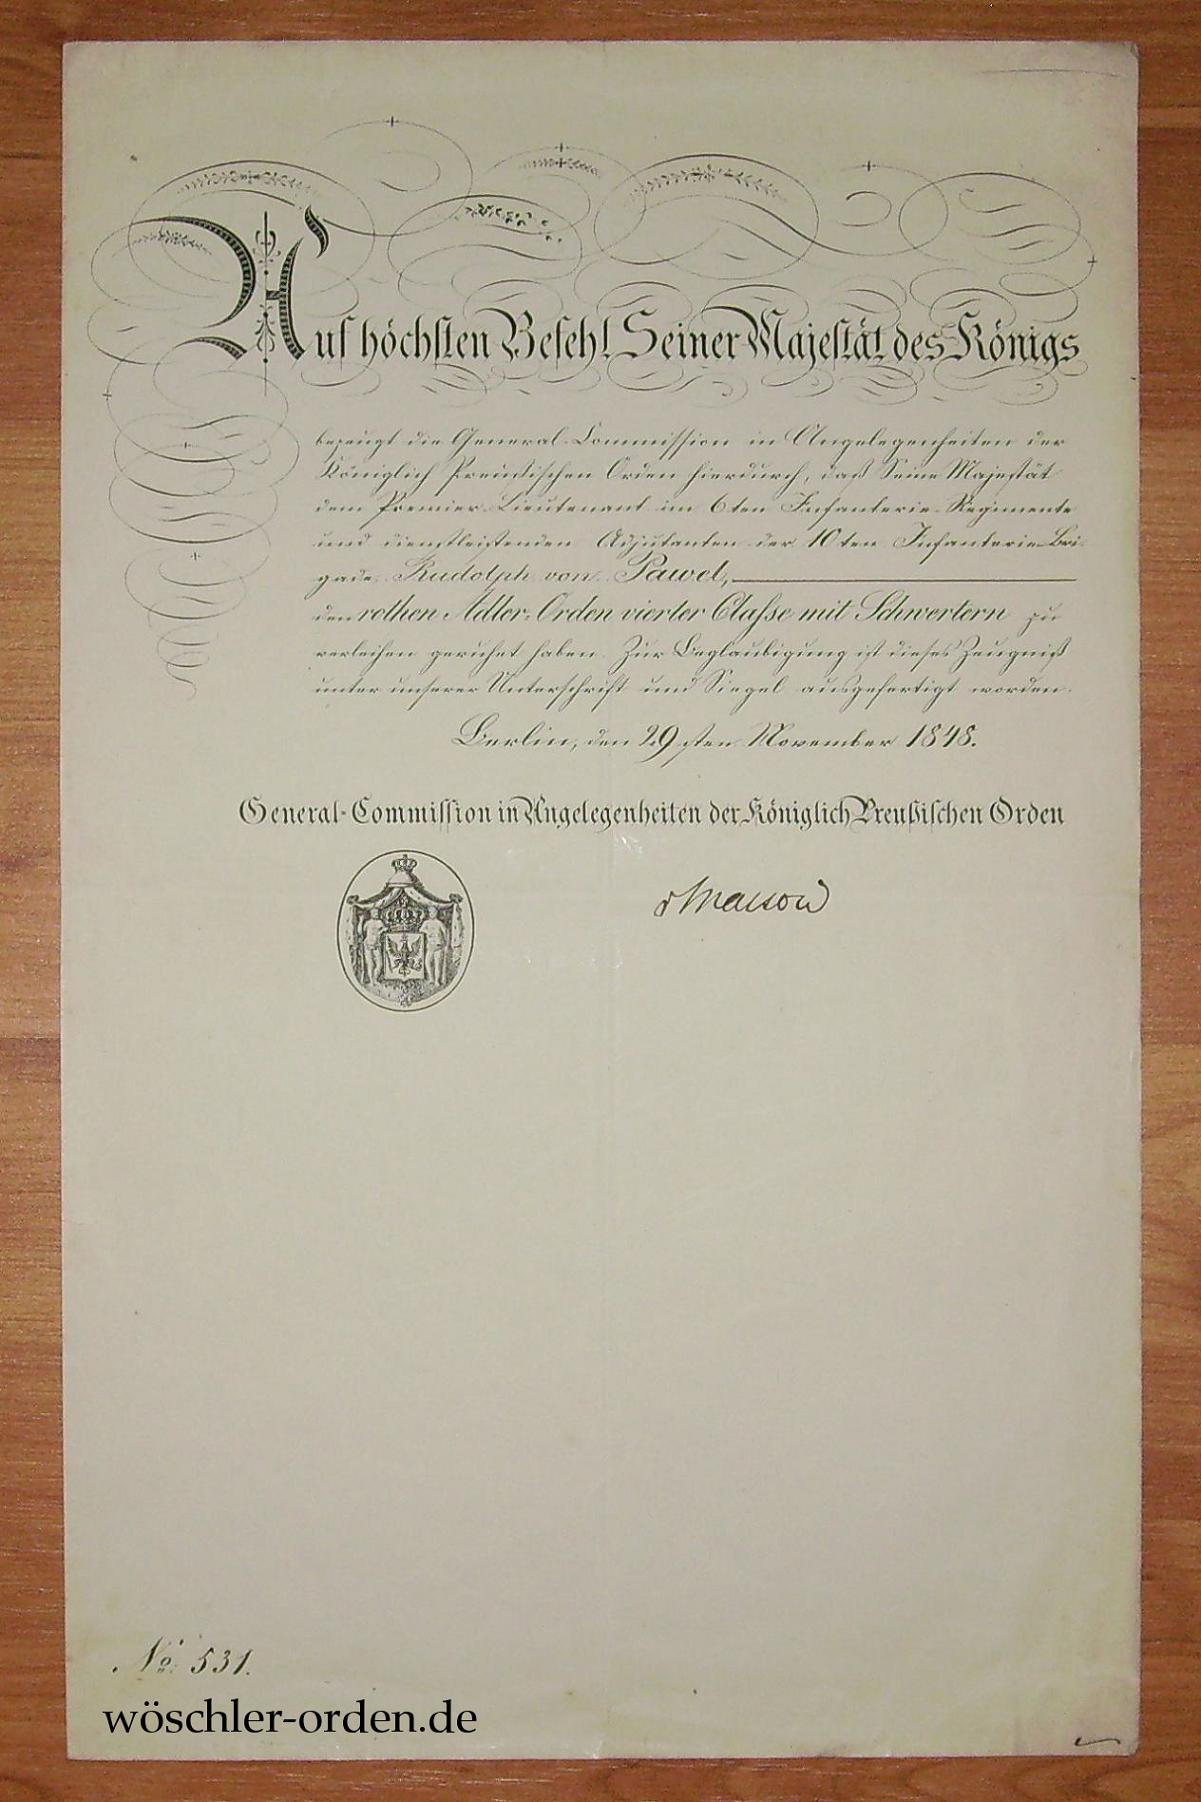 Auf höchsten Befehl Seiner Majestät des Königs
bezeugt die General-Commission in Angelegenheiten der
Königlich Preußischen Orden hierdurch, daß Seine Majestät
dem Premier-Lieutenant im 6ten Infanterie-Regimente
und dienstleistenden Adjutanten der 10ten Infanterie-Bri-
gade, Rudolph von Pawel,
den rothen Adler-Orden vierter Classe mit Schwertern zu
verleihen geruhet haben. Zur Beglaubigung ist dieses Zeugniß
unter unserer Unterschrift und Siegel ausgefertigt worden.
Berlin, den 29sten November 1848.
General-Commission in Angelegenheiten der Königlich Preußischen Orden
No. 531.
wöschler-orden.de